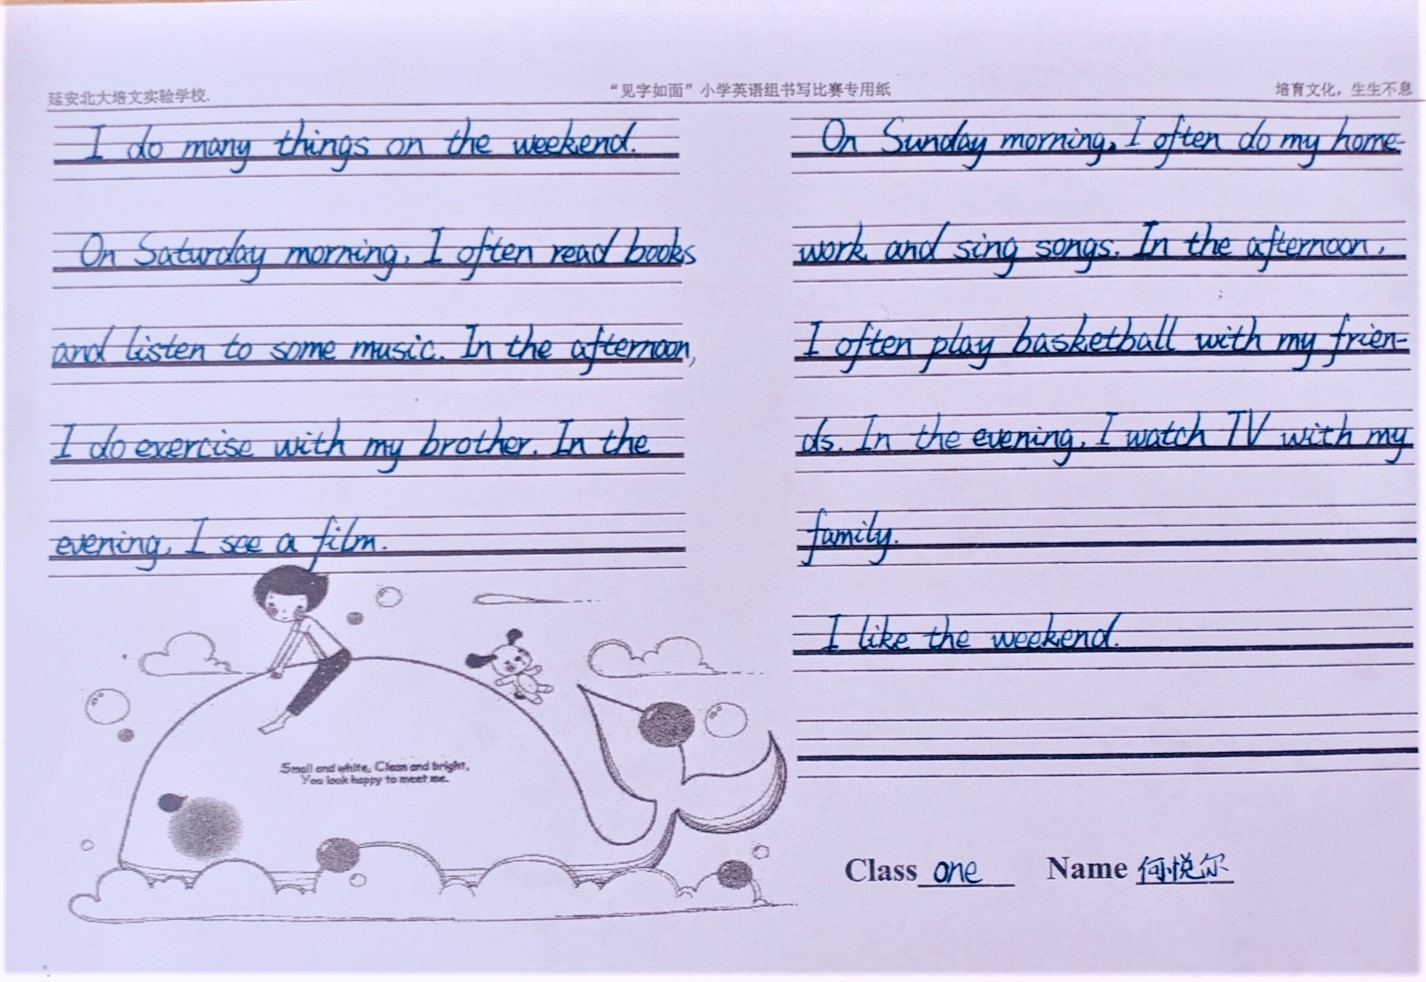 延安北大培文实验学校.
“见字如面”小学英语组书写比赛专用纸
培育文化，生生不息
I do many things on the weekend.
On Saturday morning, I often read books
and listen to some music. In the afternoon,
I do exercise with my brother. In the
evening, I see a film.
On Sunday morning, I often do my home-
work and sing songs. In the afternoon,
I often play basketball with my frien-
ds. In the evening, I watch TV with my
family.
I like the weekend.
Small and white, Clean and bright,
You look happy to meet me.
Class one Name 何悦尔